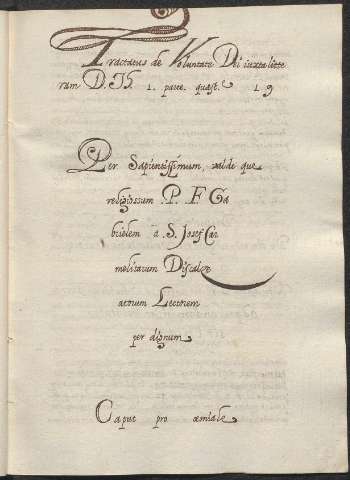 Tractatus de Voluntate Dei iuxta litte
ram D. Th. 1. parte. quæst. 19
Per Sapientissimum, valde que
religiossum P. F. Ga
brielem a S. Josef Car
melitarum Discalce
atorum Lectorem
per dignum
Caput pro œmiale